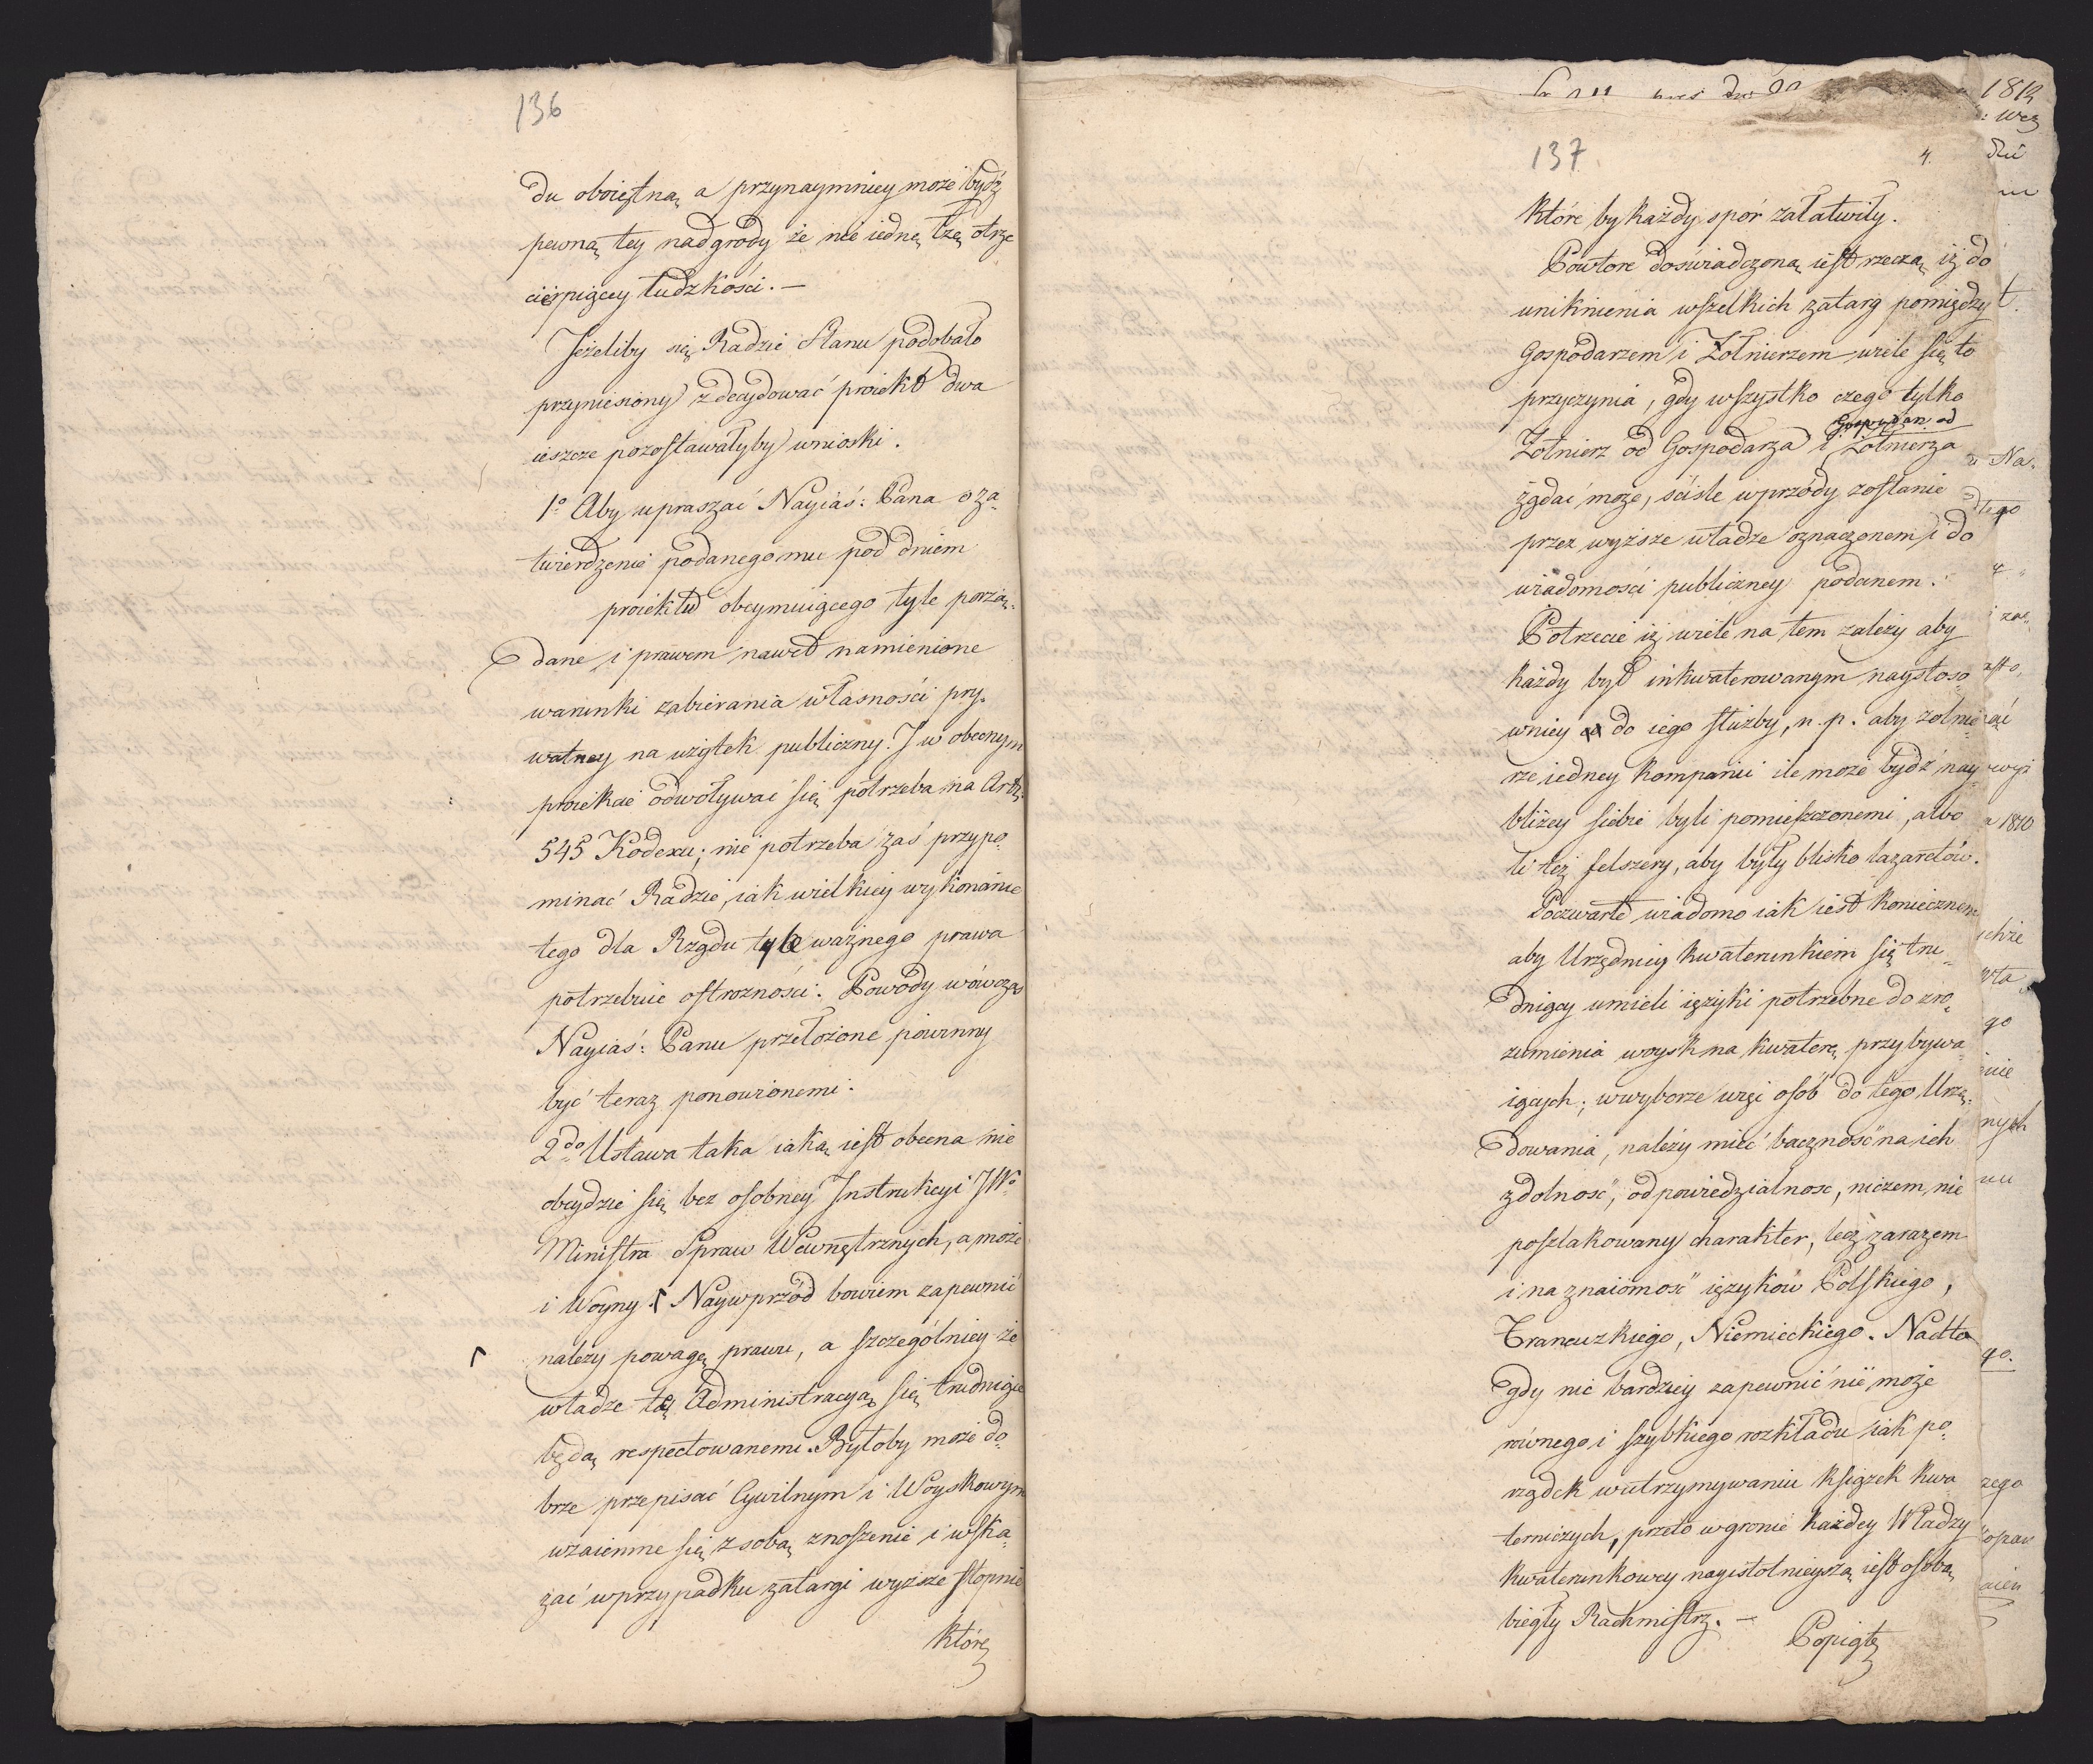 136
du oboiętną a przynaymniey może bydź
pewną tey nadgrody że nie iednę łzę otrze
cierpiącey ludzkości. —
Jeżeliby się Radzie Stanu podobało
przyniesiony zdecydować proiekt dwa
ieszcze pozostawałyby wnioski.
1º Aby upraszać Nayiaś: Pana o za„
twierdzenie podanego mu pod dniem
proiektu obeymuiącego tyle porzą„
dane i prawem nawet namienione
warunki zabierania własności pry„
watney na użytek publiczny. J w obecnym
proiekcie odwoływać się potrzeba na Art:
545 Kodexu; nie potrzeba zaś przypo„
minać Radzie, iak wielkiey wykonanie
tego dla Rządu tyle ważnego prawa
potrzebuie ostrożności. Powody wówczas
Nayiaś: Panu przełożone powinny
być teraz ponowionemi.
2do Ustawa taka iaką iest obecna nie
obeydzie się bez osobney Instrukcyi JWo
Ministra Spraw Wewnętrznych, a może
i Woyny. Γ Naywprzód bowiem zapewnić
Γ należy powagę prawu, a szczególniey że
władze tą Administracyą się trudniące
będą respectowanemi. Byłoby może do„
brze przepisać Cywilnym i Woyskowym
wzaiemne się z sobą znoszenie i wska„
zać w przypadku zatargi wyższe stopnie
które
137.
4.
które by każdy spór załatwiły.
Powtore doświadczoną iest rzeczą iż do
uniknienia wszelkich zatarg pomiędzy
Gospodarzem i Żołnierzem wiele się to
przyczynia, gdy wszystko czego tylko
Gospodarz od
Żołnierz od Gospodarza i Żołnierza
żądać może, ściśle wprzódy zostanie
przez wyższe władze oznaczonem i do
wiadomości publiczney podanem.
Potrzecie iż wiele na tem zależy aby
każdy był inkwaterowanym naystoso„
wniey do iego służby, n. p. aby żołnie„
rze iedney kompanii ile może bydź nay„
bliżey siebie byli pomieszczonemi, albo
li też felszery, aby były blisko lazaretów.
Poczwarte wiadomo iak iest koniecznem
aby Urzędnicy kwaterunkiem się tru„
dniący umieli ięzyki potrzebne do zro„
zumienia woysk na kwaterę przybywa„
iących; w wyborze więc osób do tego Urzę„
dowania, należy mieć baczność na ich
zdolność, odpowiedzialnosc, niczem nie
poszlakowany charakter, lecz zarazem
i na znaiomość ięzyków Polskiego,
Francuzkiego, Niemieckiego. Nadto
gdy nic bardziey zapewnić nie może
równego i szybkiego rozkładu iak po„
rządek w utrzymywaniu książek kwa
terniczych, przeto w gronie każdey Władzy
kwaterunkowey nayistotnieyszą iest osobą
biegły Rachmistrz. —
Popiąte
1812
1810